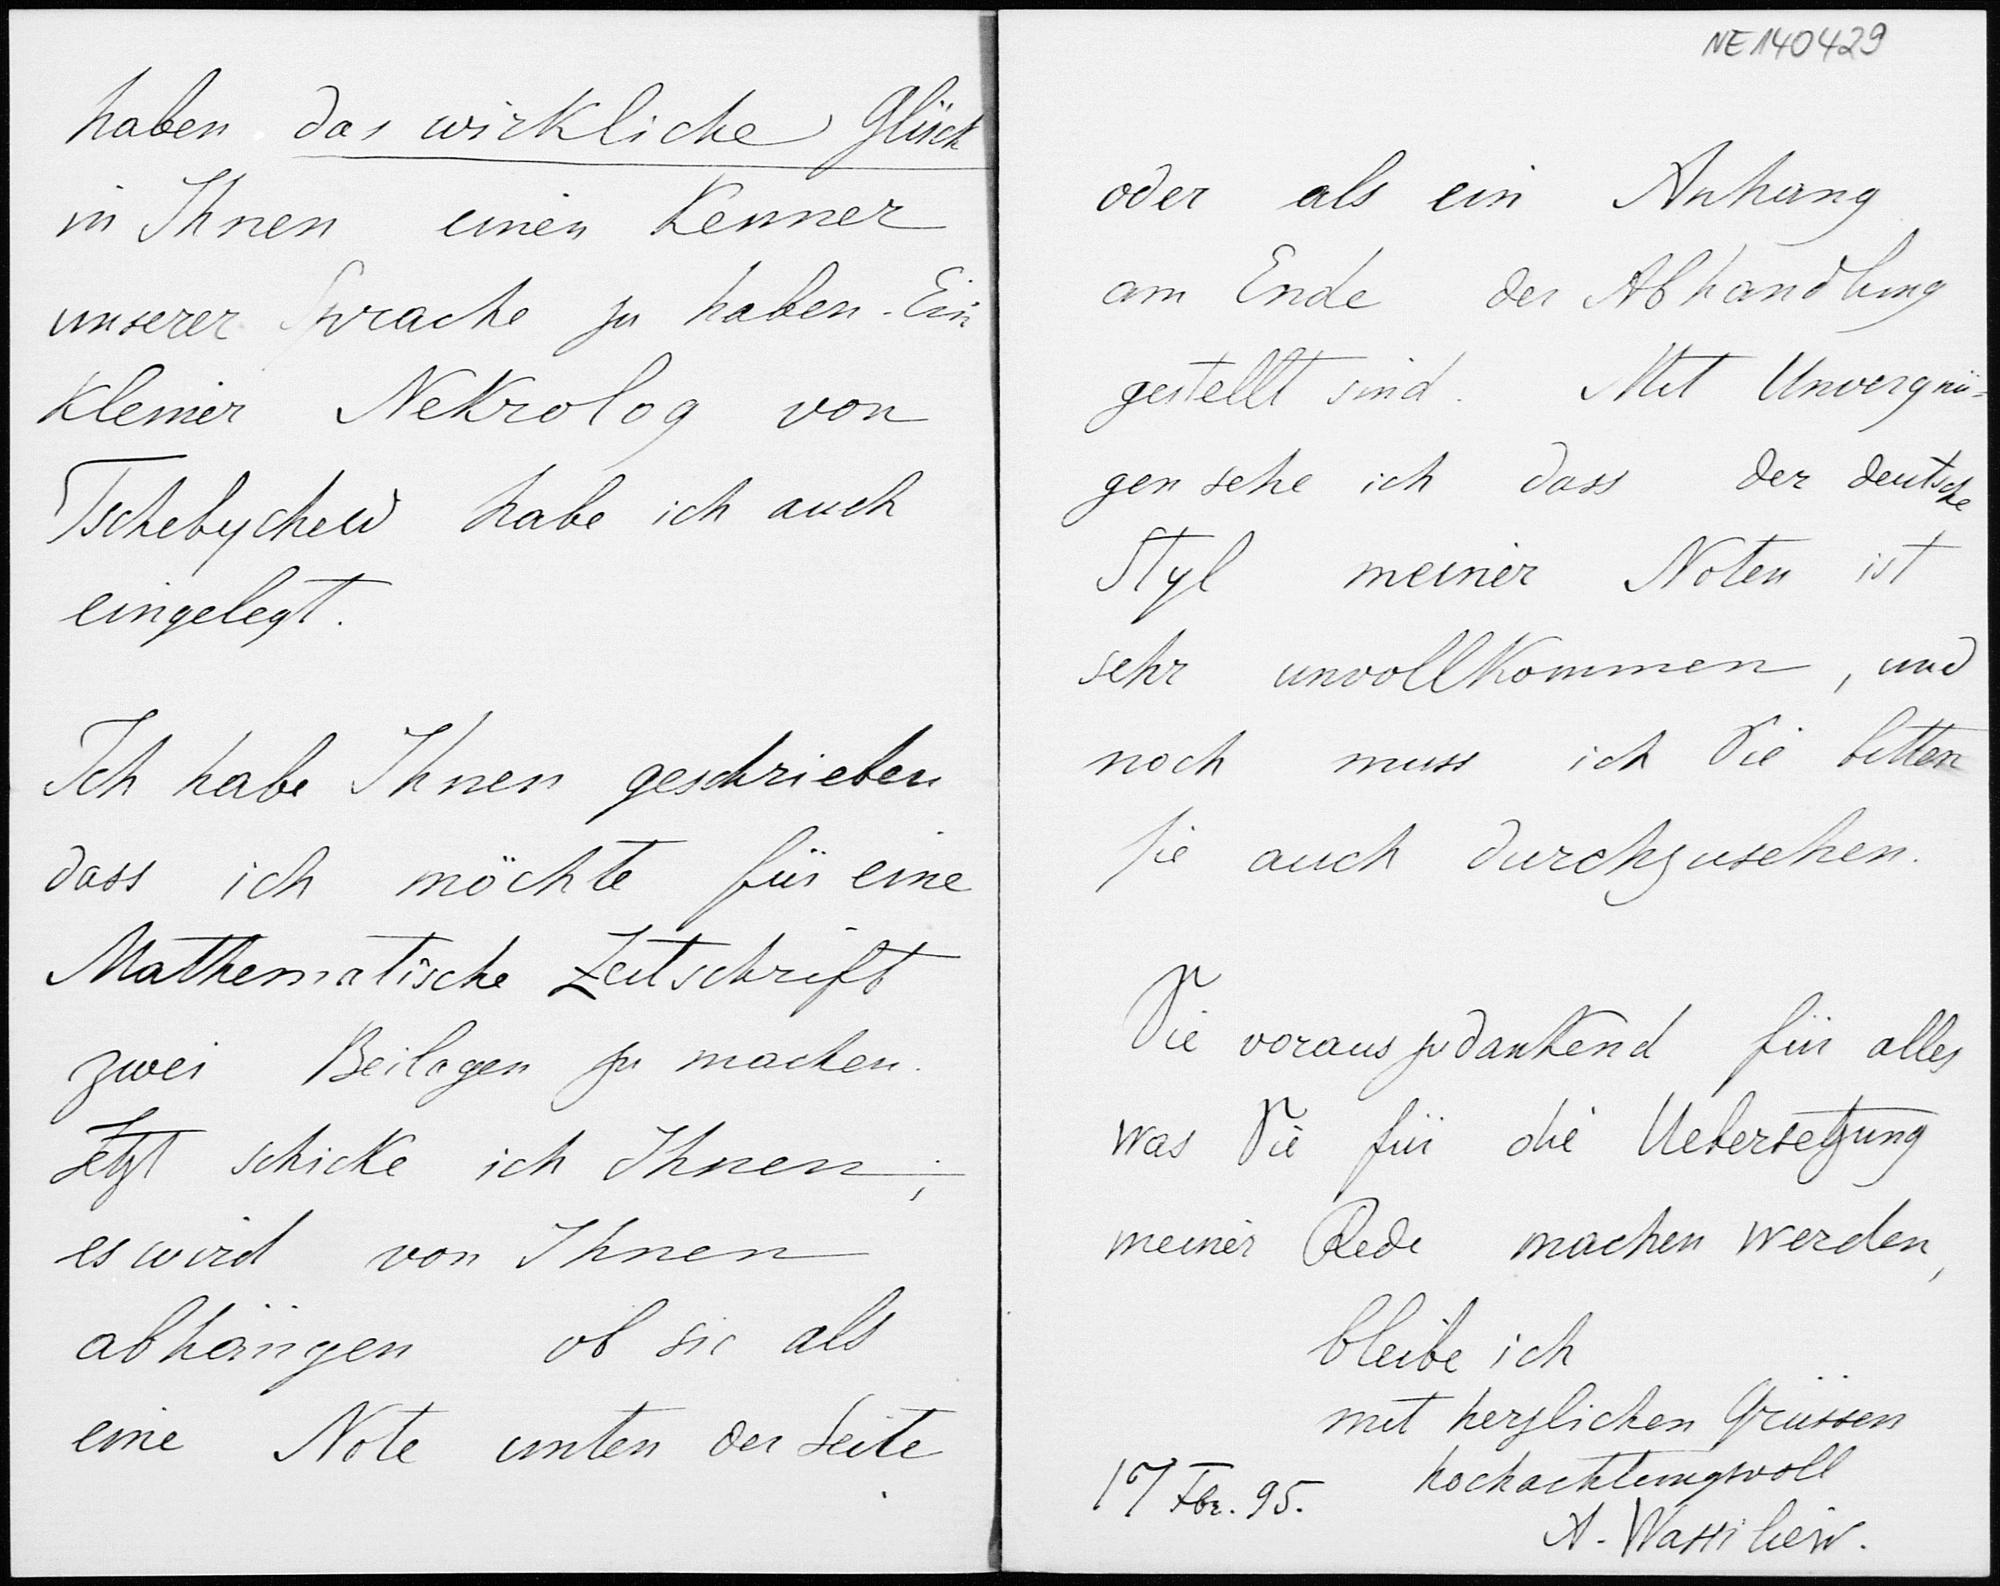 haben das wirkliche Glück
in Ihnen einen Kenner
unserer Sprache zu haben. Ein
kleiner Nekrolog von
Tschebychew habe ich auch
eingelegt.
Ich habe Ihnen geschrieben
dass ich möchte für eine
Mathematische Zeitschrift
zwei Beilagen zu machen.
Jetzt schicke ich Ihnen;
es wird von Ihnen
abhängen ob sie als
eine Note unten der Seite
NE140429
oder als ein Anhang
am Ende der Abhandlung
gestellt sind. Mit Unvergnü-
gen sehe ich dass der deutsche
Styl meiner Noten ist
sehr unvollkommen, und
noch muss ich Sie bitten
sie auch durchzusehen.
Sie voraus zu dankend für alles
was Sie für die Uebersetzung
meiner Rede machen werden,
bleibe ich
mit herzlichen Grüssen
hochachtungsvoll
17 Fbr. 95.
A. Wassiliew.